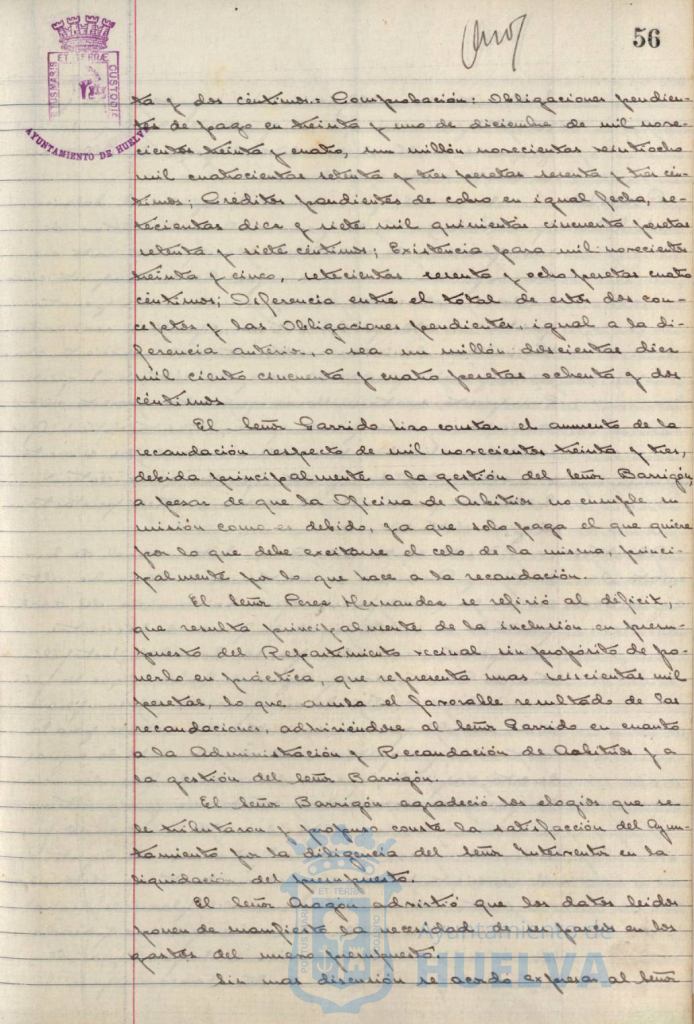 56
ET TERRÆ
CUSTODIÆ
PORTUS MARIS
AYUNTAMIENTO DE HUELVA
ta y dos céntimos.= Comprobación: Obligaciones pendien-
tes de pago en treinta y uno de diciembre de mil nove-
cientos treinta y cuatro, un millón novecientas veintiocho
mil cuatrocientas setenta y tres pesetas sesenta y tres cén-
timos; Créditos pendientes de cobro en igual fecha, se-
tecientas diez y siete mil quinientas cincuenta pesetas
setenta y siete céntimos; Existencia para mil novecientos
treinta y cinco, setecientas sesenta y ocho pesetas cuatro
céntimos; Diferencia entre el total de estos dos con-
ceptos y las Obligaciones pendientes, igual a la di-
ferencia anterior, o sea un millón doscientas diez
mil ciento cincuenta y cuatro pesetas ochenta y dos
céntimos
El Señor Garrido hizo constar el aumento de la
recaudación respecto de mil novecientos treinta y tres,
debida principalmente a la gestión del Señor Barrigón,
a pesar de que la Oficina de Arbitrios no cumple su
misión como es debido, ya que solo paga el que quiere
por lo que debe excitarse el celo de la misma, princi-
palmente por lo que hace a la recaudación.
El Señor Perez Hernandez se refirió al déficit,
que resulta principalmente de la inclusión en presu-
puesto del Repartimiento vecinal sin propósito de po-
nerlo en práctica, que representa unas seiscientas mil
pesetas, lo que anula el favorable resultado de las
recaudaciones, adhiriéndose al Señor Garrido en cuanto
a la Administración y Recaudación de Arbitrios y a
la gestión del Señor Barrigón.
El Señor Barrigón agradeció los elogios que se
le tributaron y propuso conste la satisfacción del Ayun-
tamiento por la diligencia del Señor Interventor en la
liquidación del presupuesto.
El Señor Aragón advirtió que los datos leidos
ponen de manifiesto la necesidad de ser parcos en los
gastos del nuevo presupuesto.
Sin mas discusión se acordo expresar al Señor
Ayuntamiento de
HUELVA